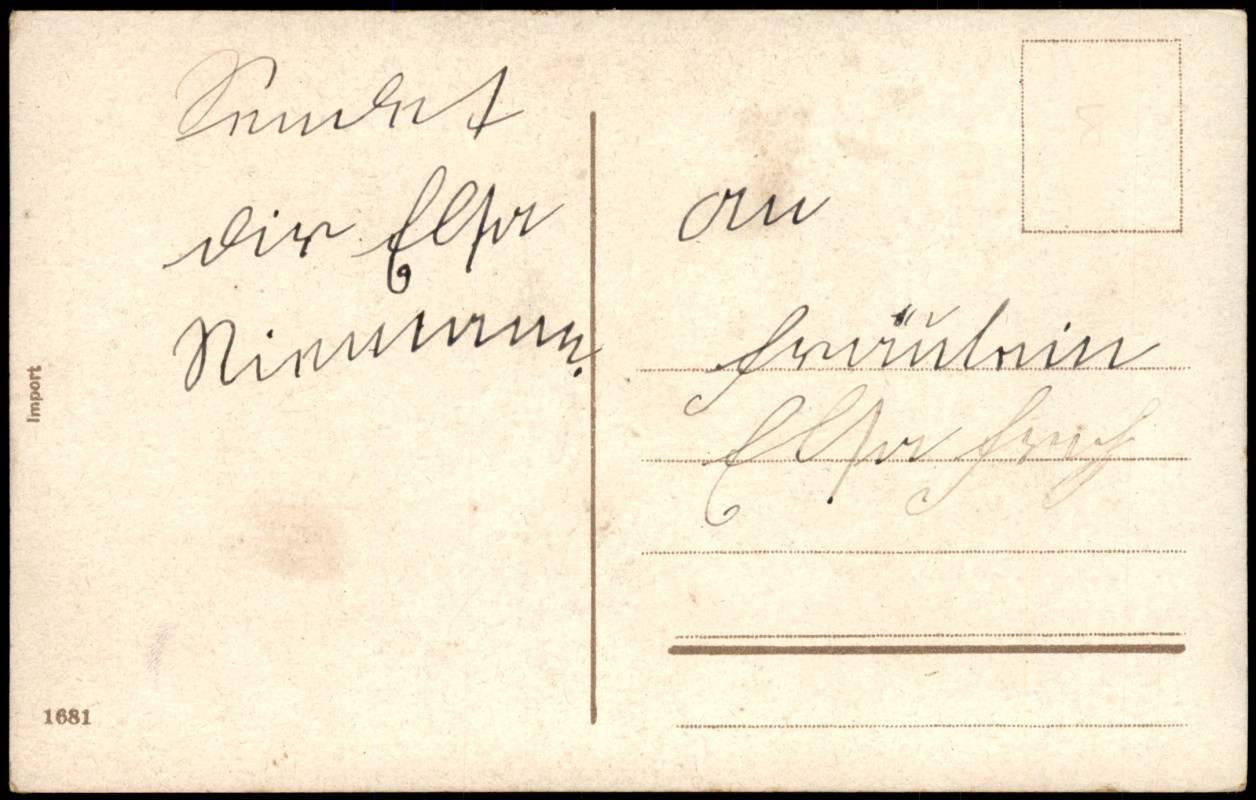 Sendet
dir Elsa
Niemann.
an
Fräulein
Elsa
Import
1681